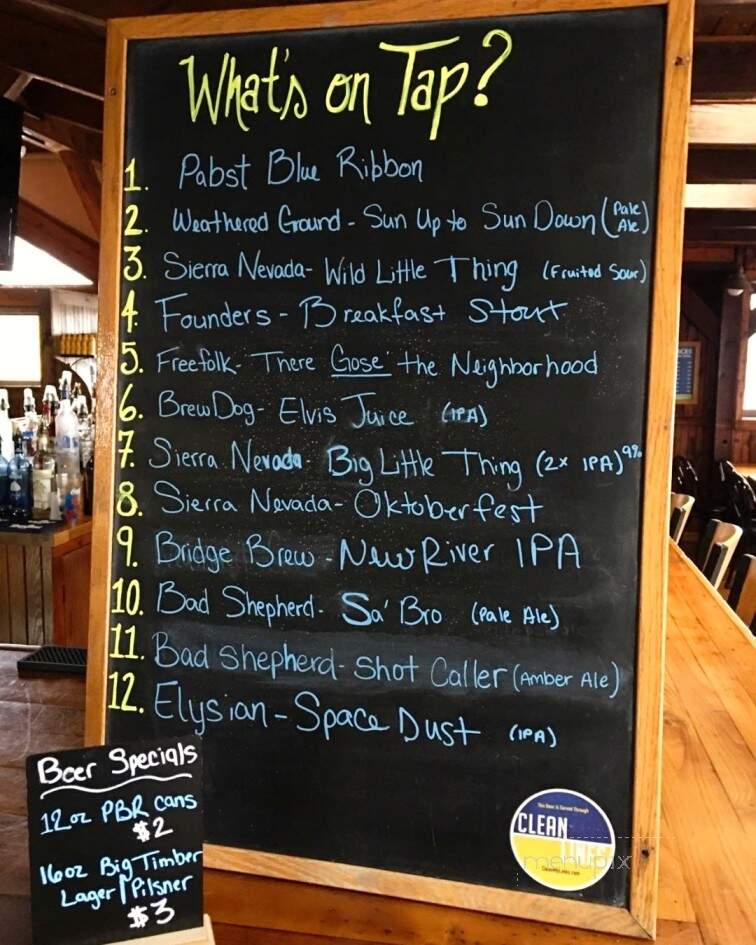 What's on Tap?
1. Pabst Blue Ribbon
2. Weathered Ground - Sun Up to Sun Down (Pale Ale)
3. Sierra Nevada - Wild Little Thing (Fruited Sour)
4. Founders - Breakfast Stout
5. Freefolk - There Gose the Neighborhood
6. BrewDog - Elvis Juice (IPA)
7. Sierra Nevada Big Little Thing (2x IPA) 9%
8. Sierra Nevada - Oktoberfest
9. Bridge Brew - New River IPA
10. Bad Shepherd - Sa' Bro (Pale Ale)
11. Bad Shepherd - Shot Caller (Amber Ale)
12. Elysian - Space Dust (IPA)
Beer Specials
12oz PBR cans
$2
16oz Big Timber
Lager/Pilsner
$3
This Beer is Served Through
CLEAN
LINES
menupix